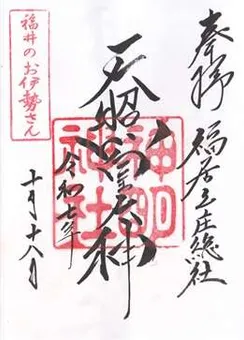 奉拝
福居庄総社
天照皇大神
神明
神社
令和七年
十月十八日
福井のお伊勢さん